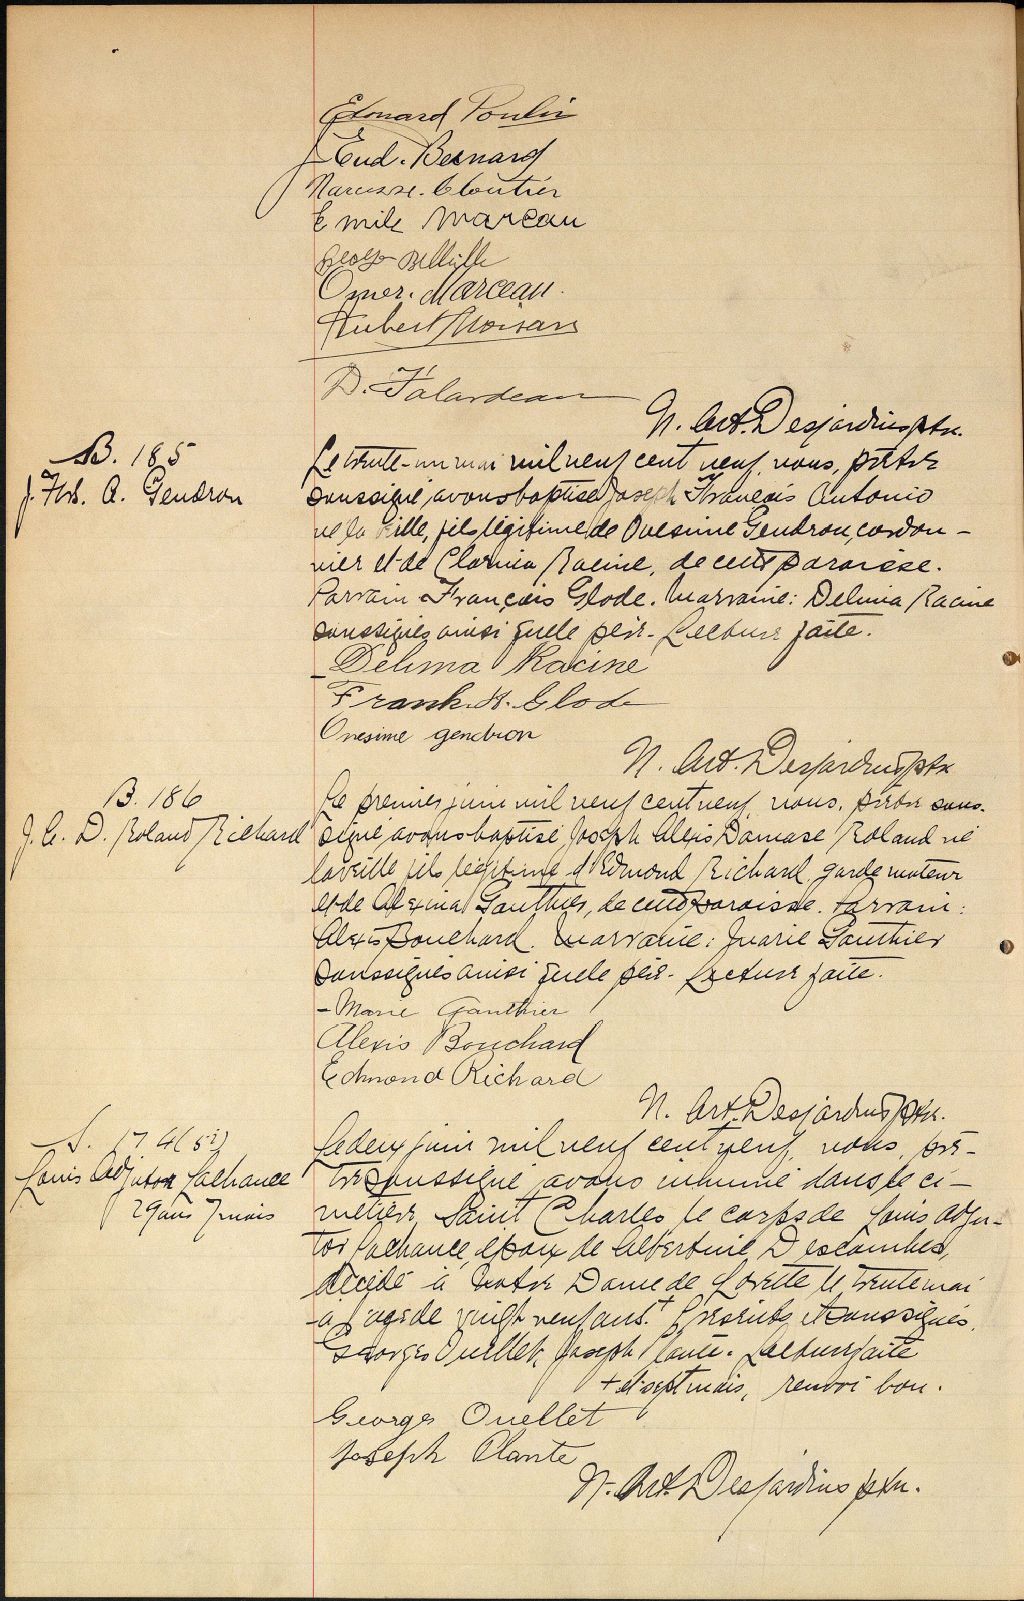 Edouard Poulin
J. Eud. Bernard
Narcisse Cloutier
Emile Marceau
Omer Marceau
Hubert Moisan
D. Falardeau
N. Art. Desjardins ptre.
B. 185
J. Frs. A. Gendron
Le trente-un mai mil neuf cent neuf, nous, prêtre
soussigné, avons baptisé Joseph François Antonio
né la veille, fils légitime de Onésime Gendron, cordon-
nier et de Clarina Racine, de cette paroisse.
Parrain François Glode. Marraine: Delima Racine
soussignés ainsi que le père. Lecture faite.
Delima Racine
Frank. H. Glode
Onesime gendron
N. Art. Desjardins ptre
B. 186
J. A. D. Roland Richard
Le premier juin mil neuf cent neuf, nous, prêtre sous-
signé avons baptisé Joseph Alexis Damase Roland né
la veille fils légitime d'Edmond Richard, garde moteur
et de Alexina Gauthier, de cette paroisse. Parrain:
Alexis Bouchard. Marraine: Marie Gauthier
soussignés ainsi que le père. Lecture faite.
Marie Gauthier
Alexis Bouchard
Edmond Richard
N. Art. Desjardins ptre.
S. 174 (51)
Louis Adjutor Lachance
29 ans 7 mois
Le deux juin mil neuf cent neuf, nous, prê-
tre soussigné, avons inhumé dans le ci-
metière Saint Charles le corps de Louis Adju-
tor Lachance, époux de Albertine Descombes,
décédé à Notre Dame de Lorette le trente mai
à l'âge de vingt neuf ans.+ Présents et soussignés,
Georges Ouellet, Joseph Plante. Lecture faite
+ et sept mois, renvoi bon.
Georges Ouellet
Joseph Plante
N. Art. Desjardins ptre.